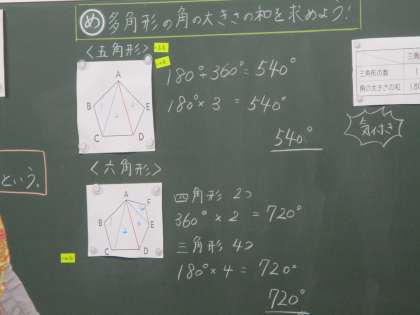 め 多角形の角の大きさの和を求めよう!
〈五角形〉
A
B
E
C
D
180°+360°=540°
180°×3 = 540°
540°
三角
三角形の数
角の大きさの和
気付き
という。
〈六角形〉
A
F
B
E
C
D
四角形 2つ
360°×2 = 720°
三角形 4つ
180°×4 = 720°
720°